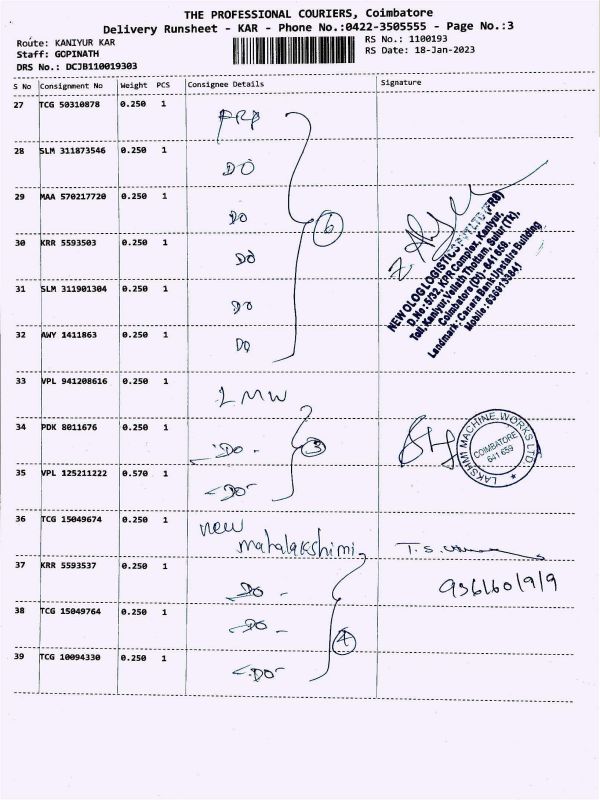 THE PROFESSIONAL COURIERS, Coimbatore
Delivery Runsheet - KAR - Phone No.:0422-3505555 - Page No.:3
Route: KANIYUR KAR
RS No.: 1100193
Staff: GOPINATH
RS Date: 18-Jan-2023
DRS No.: DCJB110019303
S No Consignment No Weight PCS Consignee Details Signature
27 TCG 50310878 0.250 1
28 SLM 311873546 0.250 1 DO
29 MAA 570217720 0.250 1 DO
6
30 KRR 5593503 0.250 1 DO
31 SLM 311901304 0.250 1 DO
32 AWY 1411863 0.250 1 DO
NEW OLOG LOGISTICS PVT LTD (FR8)
D.No : 5/32, KPR Complex, Kaniyur,
Toll, Kaniyur, Vellath Thottam, Sulur (TK),
Coimbatore (DT) - 641 659.
Landmark : Canara Bank Upstairs Building
33 VPL 941208616 0.250 1 LMW
34 PDK 8011676 0.250 1 - DO -
3
35 VPL 125211222 0.570 1 - DO -
LAKSHMI MACHINE WORKS LTD.
COIMBATORE
641 659
36 TCG 15049674 0.250 1 new
mahalakshimi
T. S.
37 KRR 5593537 0.250 1 - DO -
38 TCG 15049764 0.250 1 - DO -
4
39 TCG 10094330 0.250 1 - DO -